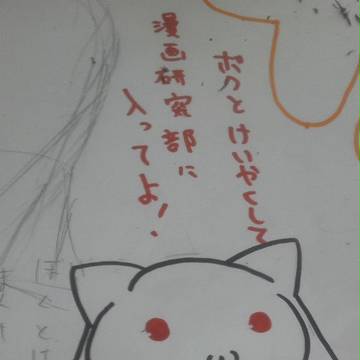 ボクとけいやくして
漫画研究部に
入ってよ!